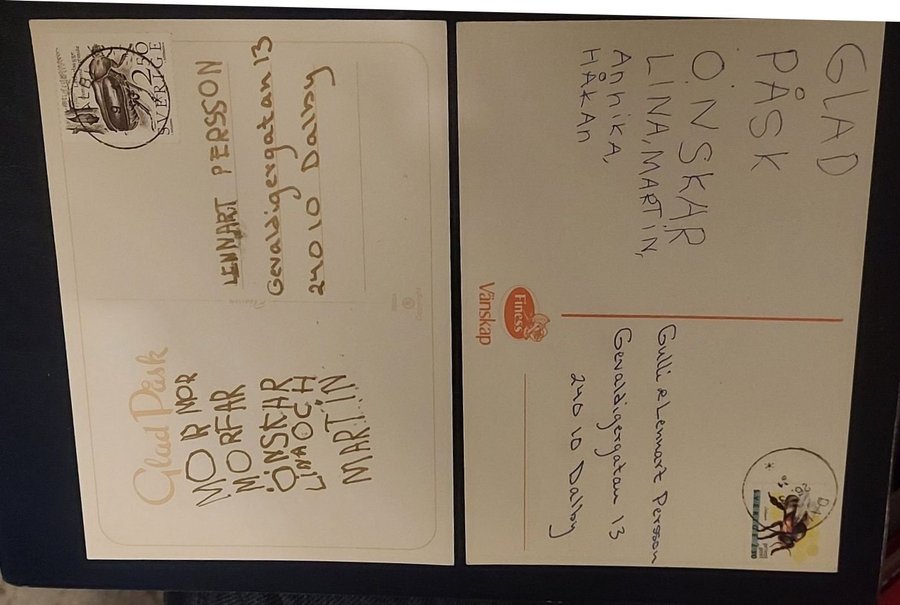 Glad Påsk
MORMOR
MORFAR
ÖNSKAR
LINA OCH
MARTIN
SVERIGE
2.80
LENNART PERSSON
Gevaldigergatan 13
240 10 Dalby
GLAD
PÅSK
ÖNSKAR
LINA, MARTIN,
Annika,
HÅKAN
Finess
Vänskap
Gulli & Lennart Persson
Gevaldigergatan 13
240 10 Dalby